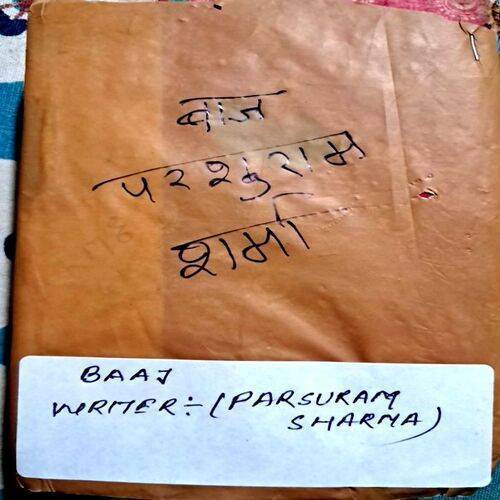 बाज
परशुराम
शर्मा
BAAJ
WRITER:- (PARSURAM
SHARMA)